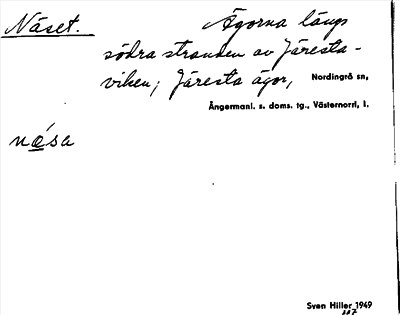 Näset. Ägorna längs
södra stranden av Järesta-
viken; Järesta ägor, Nordingrå sn,
Ångermanl. s. doms. tg., Västernorrl, l.
næ´sa
Sven Hiller 1949